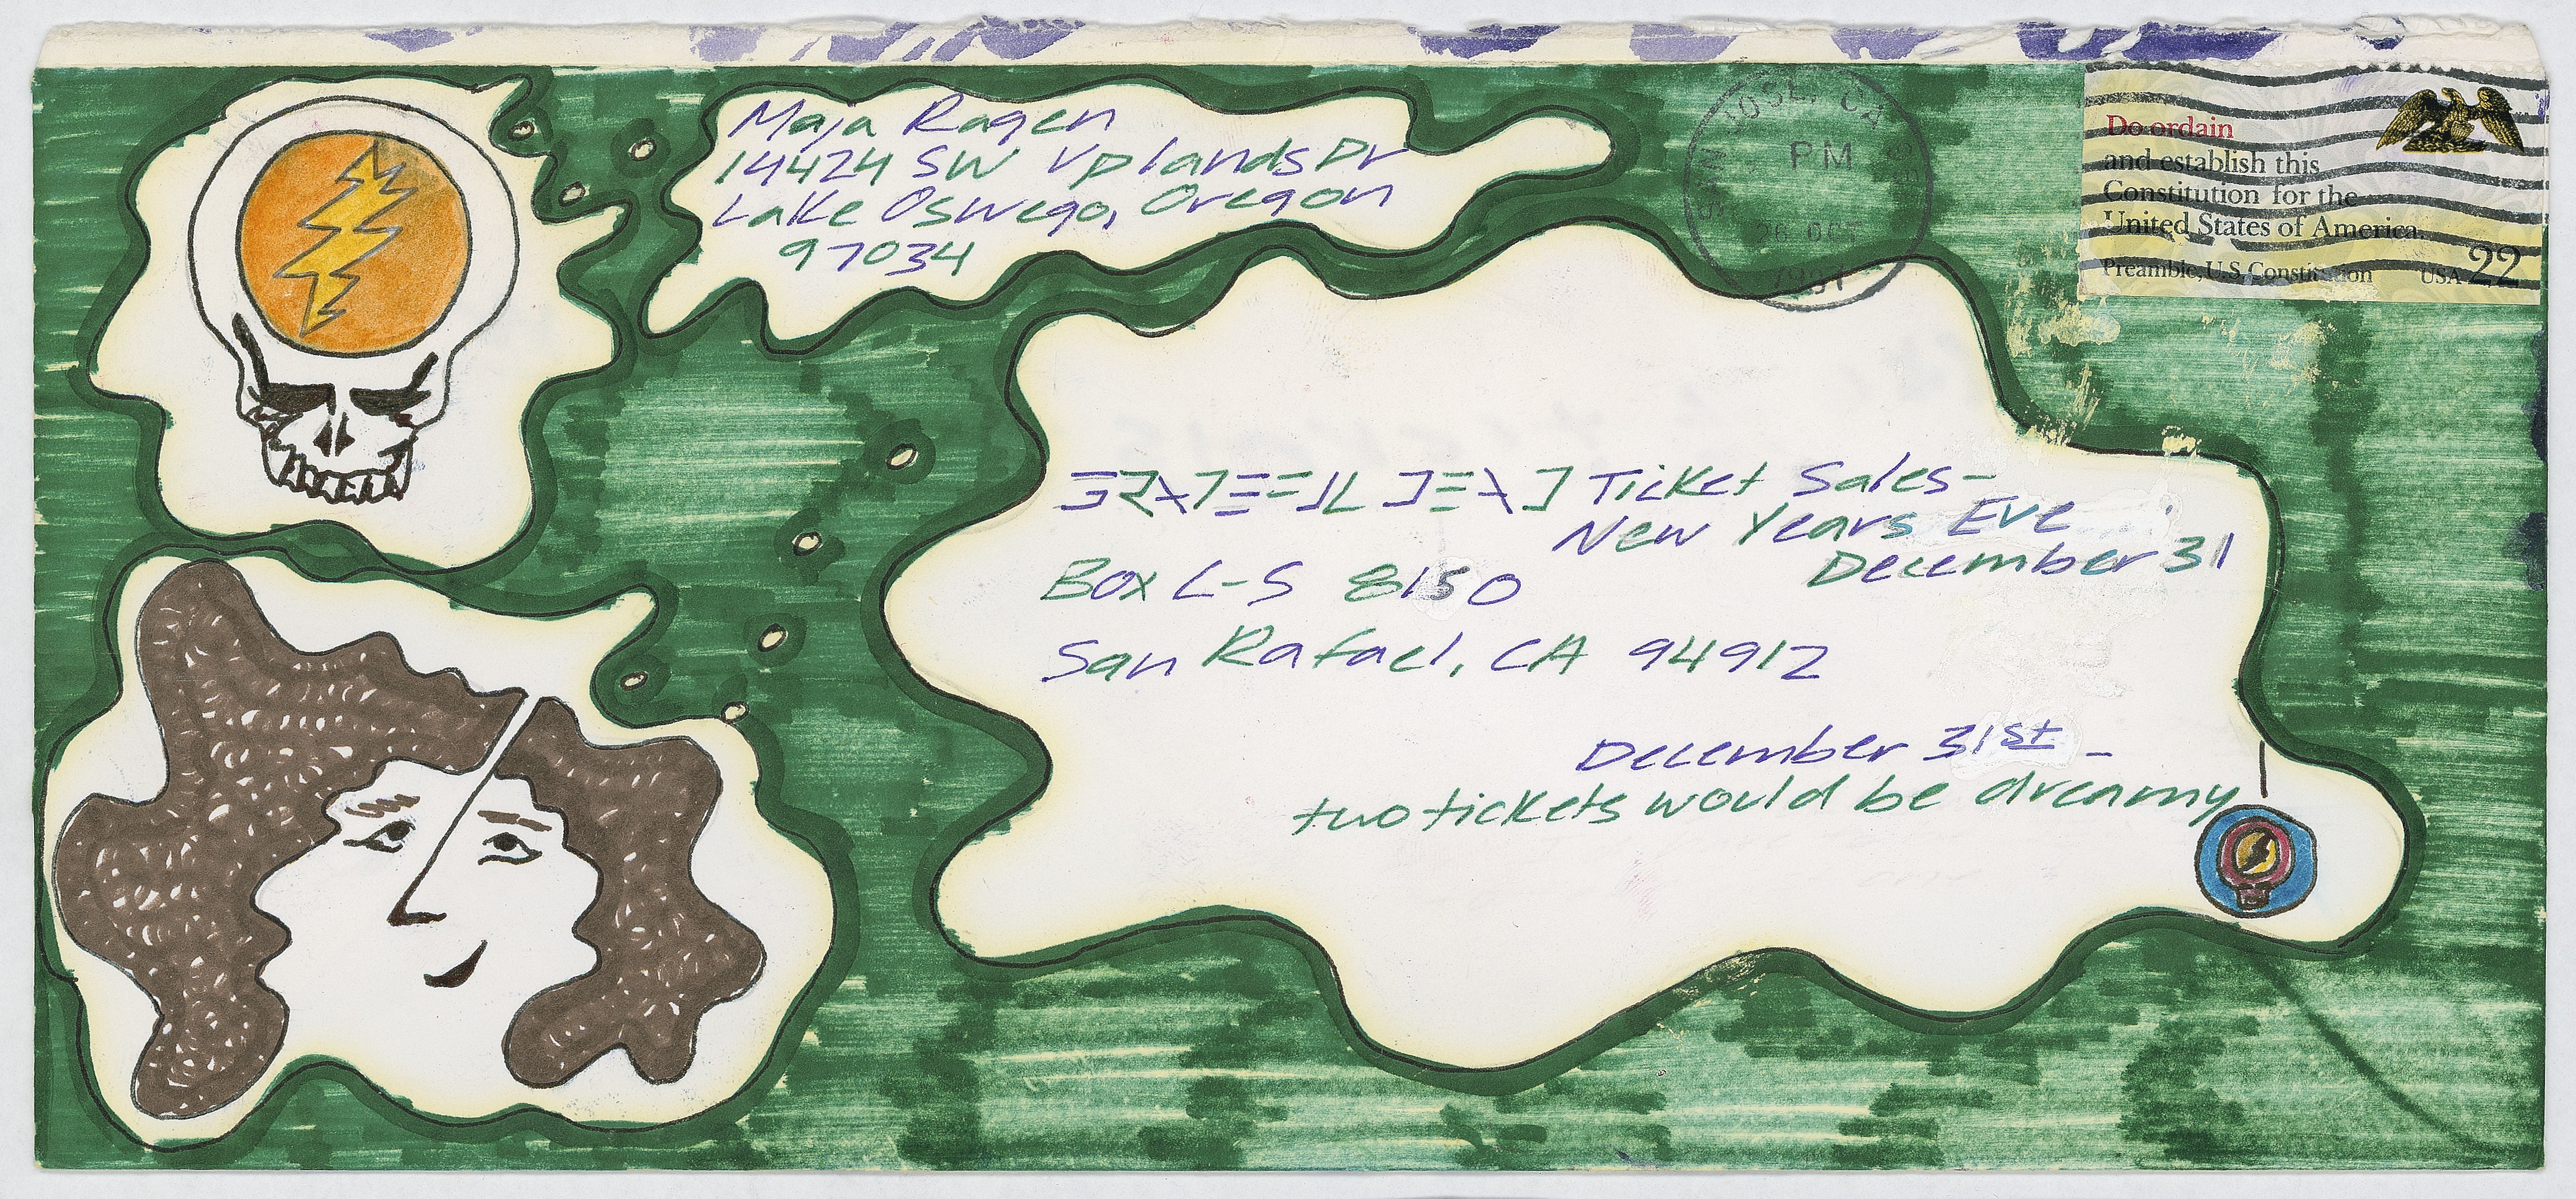 Maja Ragen
14424 SW Uplands Dr
Lake Oswego, Oregon
97034
SAN JOSE, CA
PM
26 OCT
Do ordain
and establish this
Constitution for the
United States of America.
Preamble, U.S. Constitution USA 22
GRATEFUL DEAD Ticket Sales-
New Years Eve
December 31
Box C-S 8150
San Rafael, CA 94912
December 31st -
two tickets would be dreamy